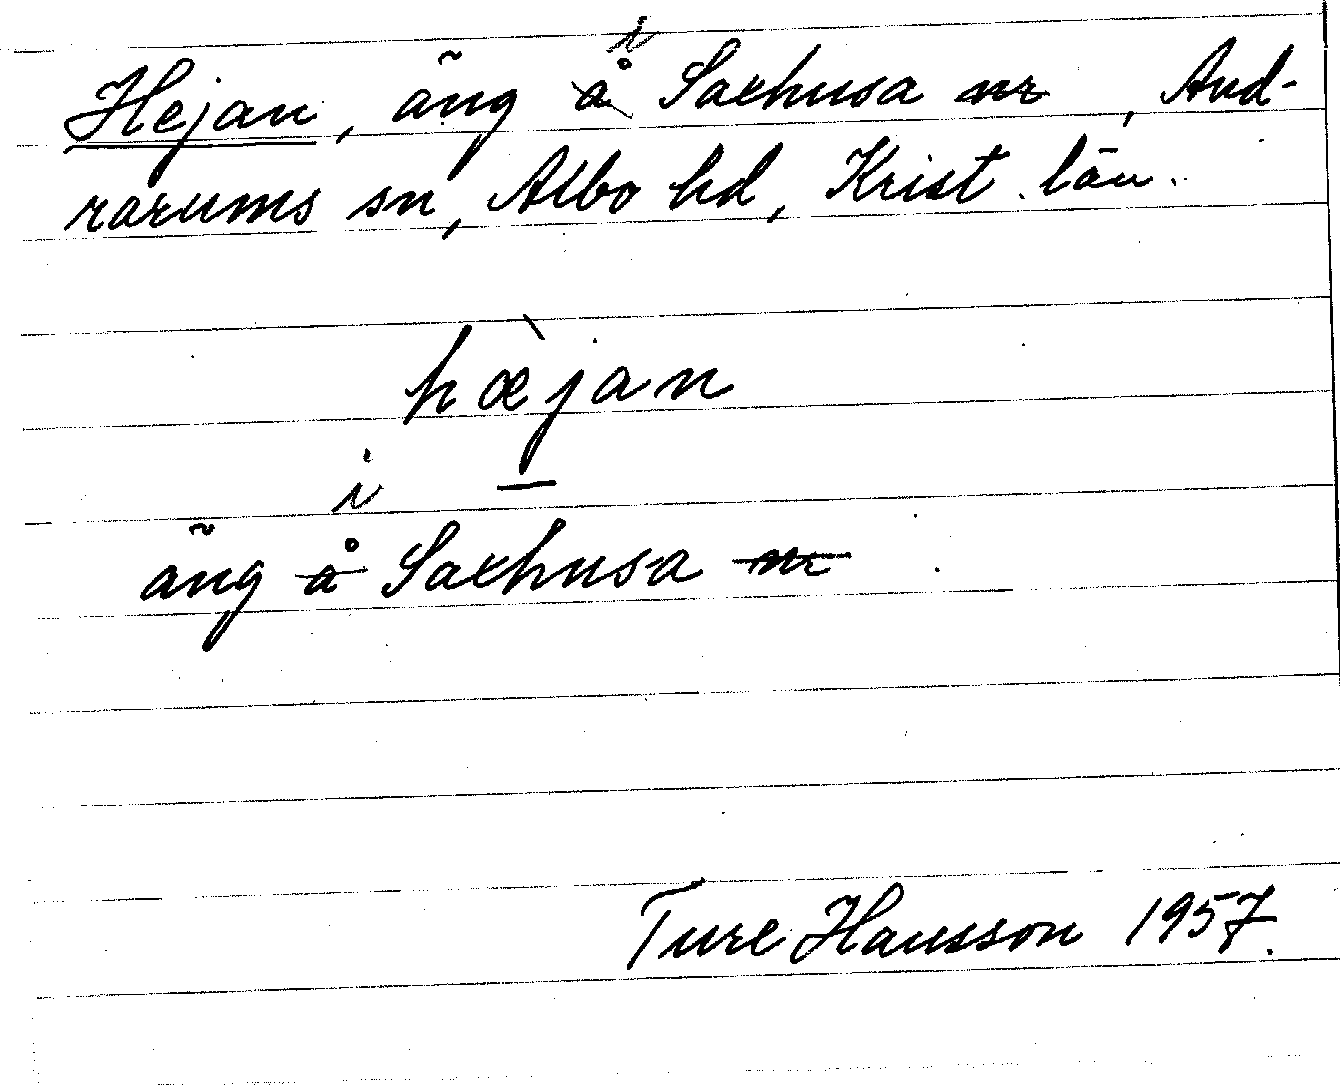 Hejan, äng i Saxhusa, And-
rarums sn, Albo hd, Krist. län.
hæ̀jan
äng i Saxhusa
Ture Hansson 1957.